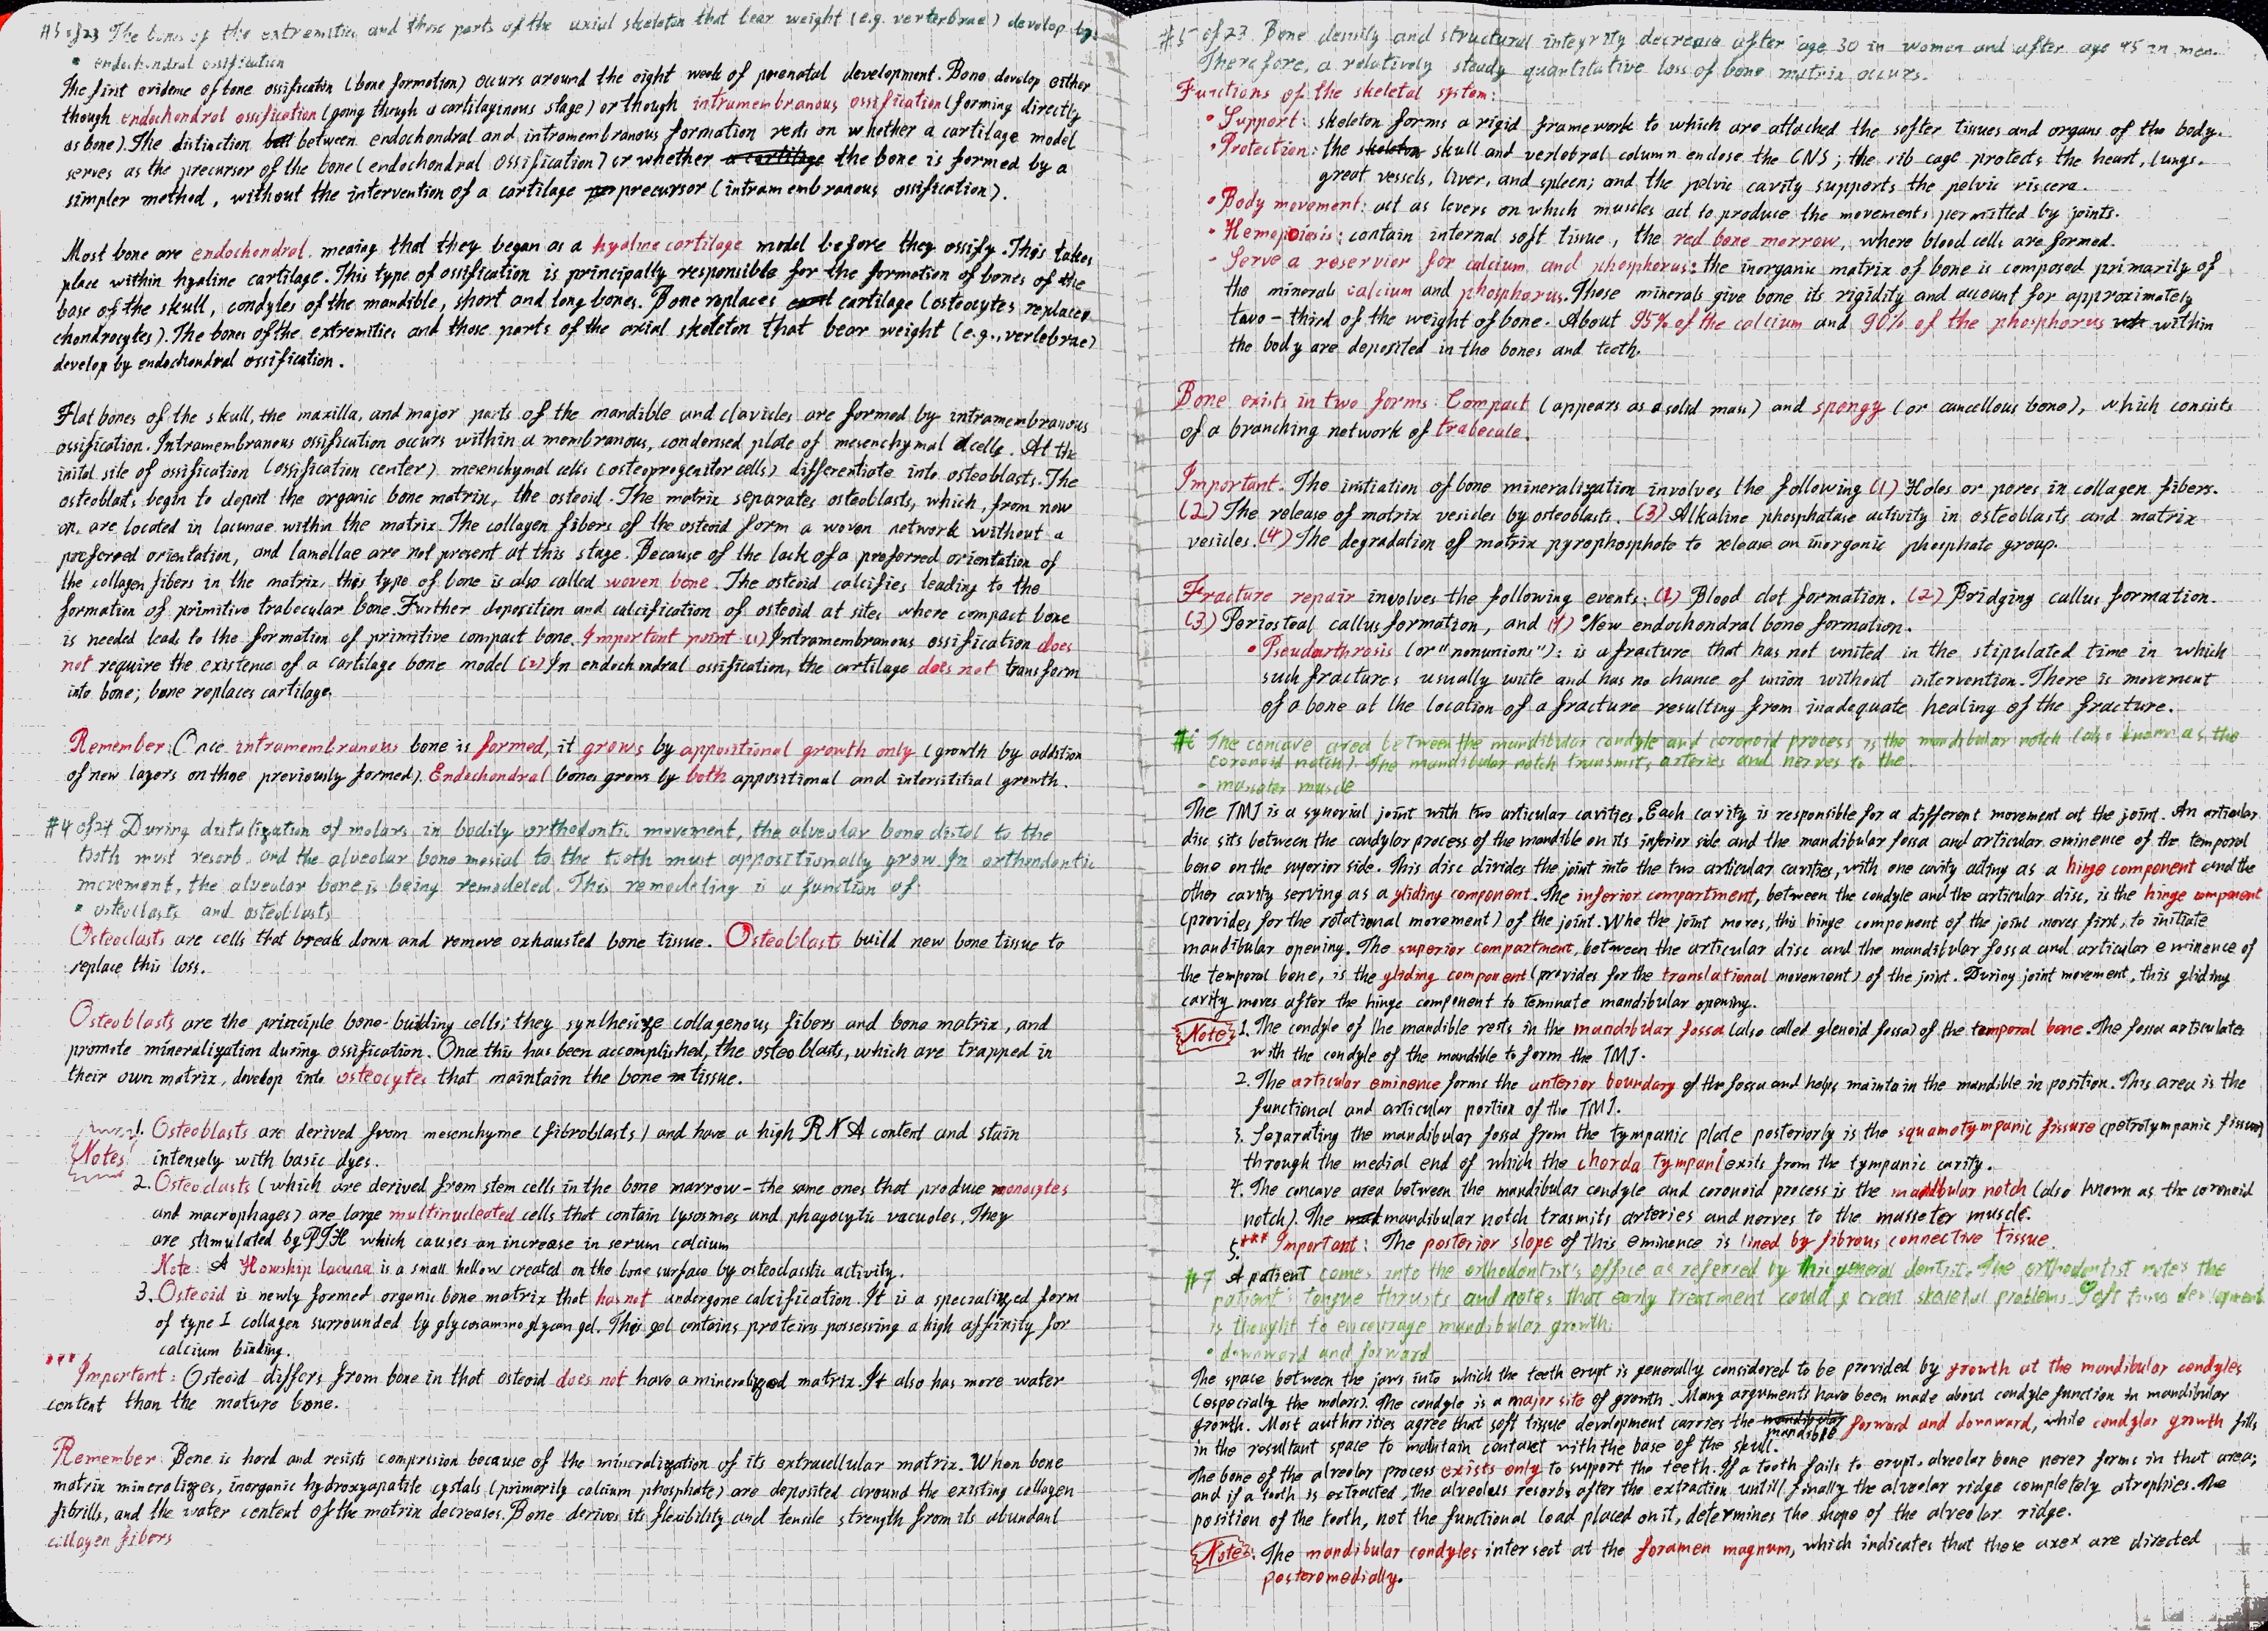 #3 of 23 The bones of the extremities and those parts of the axial skeleton that bear weight (e.g. verterbrae) develop by:
• endochondral ossification
The first evidence of bone ossification (bone formation) occurs around the eight week of prenatal development. Bone develop either
though endochondral ossification (going though a cartilaginous stage) or though intramembranous ossification (forming directly
as bone). The distinction between endochondral and intramembranous formation rests on whether a cartilage model
serves as the precursor of the bone (endochondral ossification) or whether a cartilage the bone is formed by a
simpler method, without the intervention of a cartilage precursor (intramembranous ossification).
Most bone are endochondral, meaing that they began as a hyaline cartilage model before they ossify. This takes
place within hyaline cartilage. This type of ossification is principally responsible for the formation of bones of the
base of the skull, condyles of the mandible, short and long bones. Bone replaces cartilage (osteocytes replaces
chondrocytes). The bones of the extremities and those parts of the axial skeleton that bear weight (e.g., vertebrae)
develop by endochondral ossification.
Flat bones of the skull, the maxilla, and major parts of the mandible and clavicles are formed by intramembranous
ossification. Intramembranous ossification occurs within a membranous, condensed plate of mesenchymal cells. At the
inital site of ossification (ossification center) mesenchymal cells (osteoprogenitor cells) differentiate into osteoblasts. The
osteoblasts begin to deposit the organic bone matrix, the osteoid. The matrix separates osteoblasts, which, from now
on, are located in lacunae within the matrix. The collagen fibers of the osteoid form a woven network without a
preferred orientation, and lamellae are not present at this stage. Because of the lack of a preferred orientation of
the collagen fibers in the matrix, this type of bone is also called woven bone. The osteoid calcifies leading to the
formation of primitive trabecular bone. Further deposition and calcification of osteoid at sites where compact bone
is needed leads to the formation of primitive compact bone. Important point (1) Intramembranous ossification does
not require the existence of a cartilage bone model (2) In endochondral ossification, the cartilage does not transform
into bone; bone replaces cartilage.
Remember: Once intramembranous bone is formed, it grows by appositional growth only (growth by addition
of new layers on thoe previously formed). Endochondral bones grows by both appositional and interstitial growth.
#4 of 24 During distalization of molars in bodily orthodontic movement, the alveolar bone distal to the
tooth must resorb, and the alveolar bone mesial to the tooth must appositionally grow. In orthodontic
movement, the alveolar bone is being remodeled. This remodeling is a function of:
• osteoclasts and osteoblasts
Osteoclasts are cells that break down and remove exhausted bone tissue. Osteoblasts build new bone tissue to
replace this loss.
Osteoblasts are the principle bone-building cells; they synthesize collagenous fibers and bone matrix, and
promote mineralization during ossification. Once this has been accomplished, the osteoblasts, which are trapped in
their own matrix, develop into osteocytes that maintain the bone tissue.
1. Osteoblasts are derived from mesenchyme (fibroblasts) and have a high RNA content and stain
Notes intensely with basic dyes.
2. Osteoclasts (which are derived from stem cells in the bone marrow – the same ones that produce monocytes
and macrophages) are large multinucleated cells that contain lysosmes and phagocytic vacuoles. They
are stimulated by PTH which causes an increase in serum calcium
Note: A Howship lacuna is a small hollow created on the bone surface by osteoclasstic activity.
3. Osteoid is newly formed organic bone matrix that has not undergone calcification. It is a specialized form
of type I collagen surrounded by glycosaminoglycan gel. This gel contains proteins possessing a high affinity for
calcium binding.
Important: Osteoid differs from bone in that osteoid does not have a mineralized matrix. It also has more water
content than the mature bone.
Remember: Bone is hard and resists compression because of the mineralization of its extracellular matrix. When bone
matrix mineralizes, inorganic hydroxyapatite cystals (primarily calcium phosphate) are deposited around the existing collagen
fibrills, and the water content of the matrix decreases. Bone derives its flexibility and tensile strength from its abundant
collagen fibers
#5 of 23 Bone density and structural integrity decrease after age 30 in women and after age 45 in men.
Therefore, a relatively steady quantitative loss of bone matrix occurs.
Functions of the skeletal system:
• Support: skeleton forms a rigid framework to which are attached the softer tissues and organs of the body.
• Protection: the skeleton skull and vertebral column enclose the CNS; the rib cage protects the heart, lungs,
great vessels, liver, and spleen; and the pelvic cavity supports the pelvic viscera.
• Body movement: act as levers on which muscles act to produce the movements permitted by joints.
• Hemopoiesis: contain internal soft tissue, the red bone morrow, where blood cells are formed.
- Serve a reservior for calcium and phosphorus: the inorganic matrix of bone is composed primarily of
the minerals calcium and phosphorus. These minerals give bone its rigidity and account for approximately
two-third of the weight of bone. About 95% of the calcium and 90% of the phosphorus within
the body are deposited in the bones and teeth.
Bone exists in two forms: Compact (appears as a solid mass) and spongy (or cancellous bone), which consists
of a branching network of trabecule.
Important: The initiation of bone mineralization involves the following (1) Holes or pores in collagen fibers.
(2) The release of matrix vesicles by osteoblasts. (3) Alkaline phosphatase activity in osteoblasts and matrix
vesicles. (4) The degradation of matrix pyrophosphate to release an inorganic phosphate group.
Fracture repair involves the following events: (1) Blood clot formation. (2) Bridging callus formation.
(3) Periosteal callus formation, and (4) New endochondral bone formation.
• Pseudarthrosis (or "nonunions"): is a fracture that has not united in the stipulated time in which
such fractures usually unite and has no chance of union without intervention. There is movement
of a bone at the location of a fracture resulting from inadequate healing of the fracture.
#6 The concave area between the mandibular condyle and coronoid process is the mandibular notch (also known as the
coronoid notch). The mandibular notch transmits arteries and nerves to the:
• masseter muscle
The TMJ is a synovial joint with two articular cavities. Each cavity is responsible for a different movement at the joint. An articular
disc sits between the condylar process of the mandible on its inferior side and the mandibular fossa and articular eminence of the temporal
bone on the superior side. This disc divides the joint into the two articular cavities, with one cavity acting as a hinge component and the
other cavity serving as a gliding component. The inferior compartment, between the condyle and the articular disc, is the hinge component
(provides for the rotational movement) of the joint. Whe the joint moves, this hinge component of the joint moves first, to initiate
mandibular opening. The superior compartment, between the articular disc and the mandibular fossa and articular eminence of
the temporal bone, is the gliding component (provides for the translational movement) of the joint. During joint movement, this gliding
cavity moves after the hinge component to teminate mandibular opening.
Note: 1. The condyle of the mandible rests in the mandibular fossa (also called glenoid fossa) of the temporal bone. The fossa articulates
with the condyle of the mandible to form the TMJ.
2. The articular eminence forms the anterior boundary of the fossa and helps maintain the mandible in position. This area is the
functional and articular portion of the TMJ.
3. Separating the mandibular fossa from the tympanic plate posteriorly is the squamotympanic fissure (petrotympanic fissure)
through the medial end of which the chorda tympani exits from the tympanic cavity.
4. The concave area between the mandibular condyle and coronoid process is the mandibular notch (also known as the coronoid
notch). The mandibular notch trasmits arteries and nerves to the masseter muscle.
5. *** Important: The posterior slope of this eminence is lined by fibrous connective tissue.
#7 A patient comes into the orthodontist's office as referred by his general dentist. The orthodontist notes the
patient's tongue thrusts and notes that early treatment could prevent skeletal problems. Soft tissue development
is thought to encourage mandibular growth:
• downward and forward
The space between the jaws into which the teeth erupt is generally considered to be provided by growth at the mandibular condyles
(especially the molars). The condyle is a major site of growth. Many arguments have been made about condyle function in mandibular
growth. Most authorities agree that soft tissue development carries the mandible forward and downward, while condylar growth fills
in the resultant space to maintain contact with the base of the skull.
The bone of the alveolar process exists only to support the teeth. If a tooth fails to erupt, alveolar bone never forms in that area;
and if a tooth is extracted, the alveolus resorbs after the extraction untill finally the alveolar ridge completely atrophies. The
position of the tooth, not the functional load placed on it, determines the shape of the alveolar ridge.
Note: The mandibular condyles intersect at the foramen magnum, which indicates that these axex are directed
posteromedially.